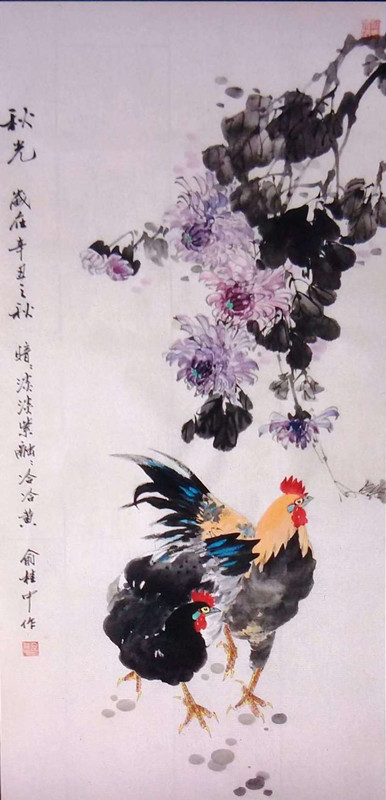 秋光 歲在辛丑之秋 暗〻淡淡紫融〻冶冶黄 俞桂中作